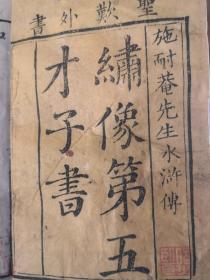 聖歎外書
施耐菴先生水滸傳
繡像第五
才子書